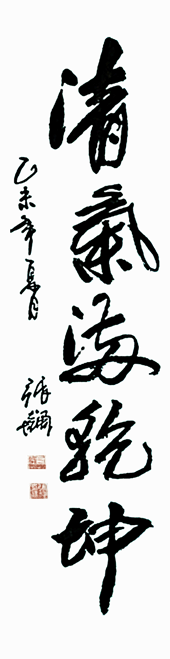 清氣滿乾坤
乙未年夏月
張